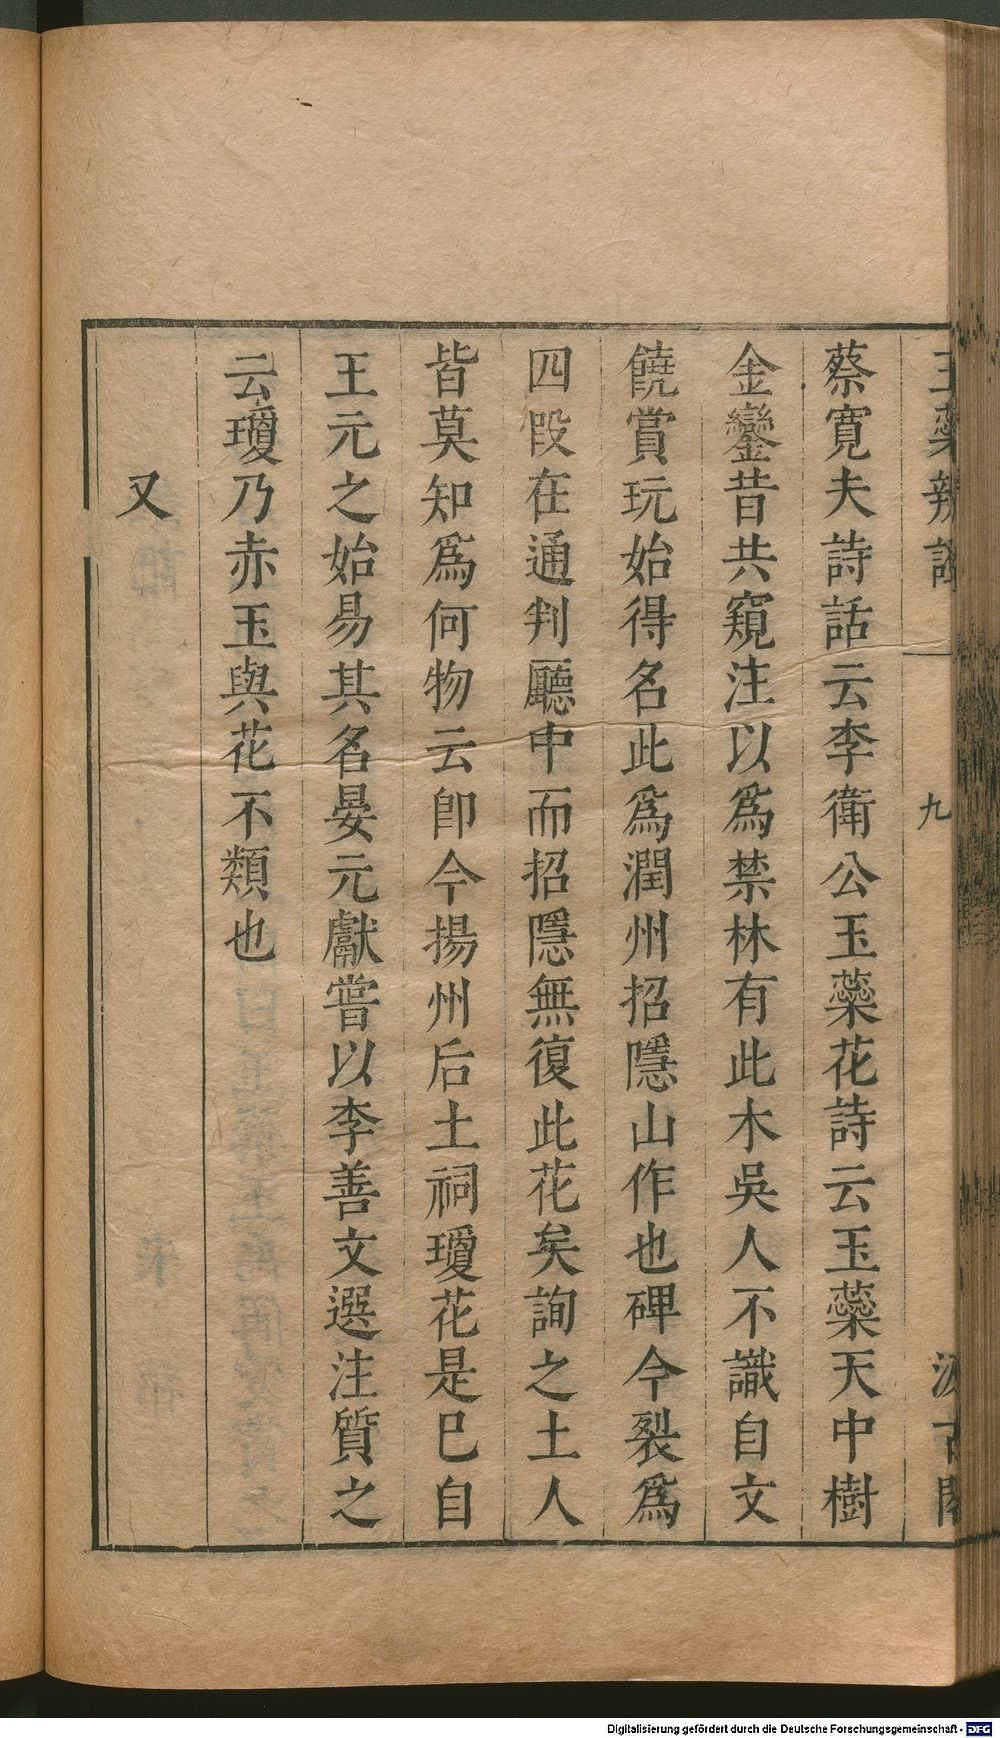 玉蘂辨證
九
汲古閣
蔡寛夫詩話云李衛公玉蘂花詩云玉蘂天中樹
金鑾昔共窺注以爲禁林有此木吳人不識自文
饒賞玩始得名此爲潤州招隱山作也碑今裂爲
四段在通判廳中而招隱無復此花矣詢之土人
皆莫知爲何物云卽今揚州后土祠瓊花是巳自
王元之始易其名晏元獻嘗以李善文選注質之
云瓊乃赤玉與花不類也
又
Digitalisierung gefördert durch die Deutsche Forschungsgemeinschaft - DFG